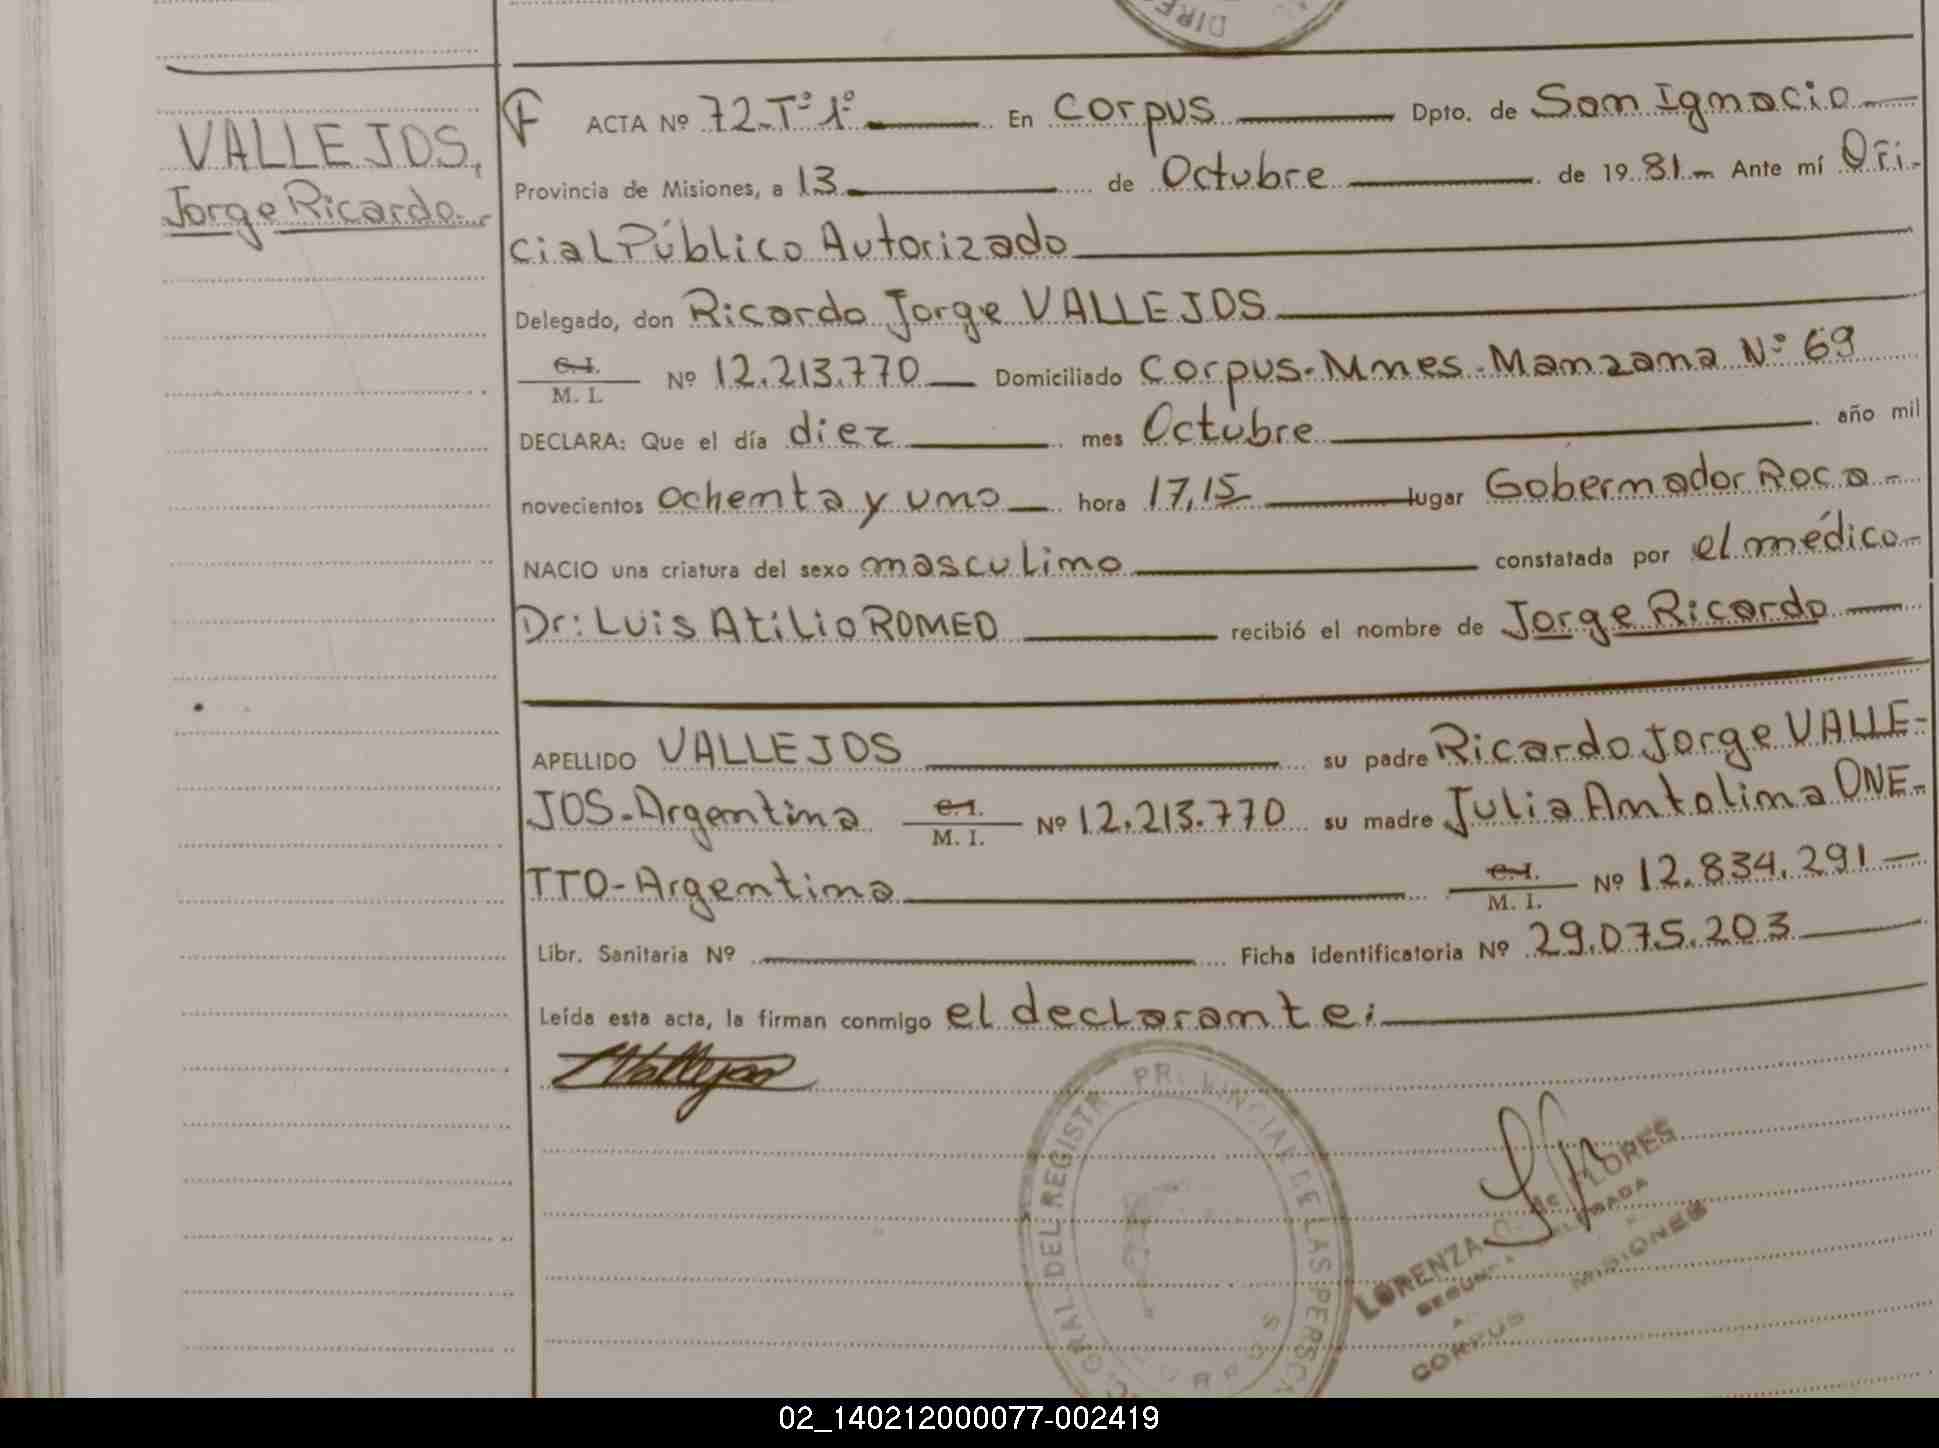 DIRE
VALLEJOS,
Jorge Ricardo.
F ACTA Nº 72-Tº1º En Corpus Dpto. de San Ignacio
Provincia de Misiones, a 13 de Octubre de 1981 Ante mí Ofi-
cial Público Autorizado
Delegado, don Ricardo Jorge VALLEJOS
C.I. / M. I. Nº 12.213.770 Domiciliado Corpus-Mnes-Manzana Nº 69
DECLARA: Que el día diez mes Octubre año mil
novecientos ochenta y uno hora 17,15 lugar Gobernador Roca-
NACIO una criatura del sexo masculino constatada por el médico-
Dr: Luis Atilio ROMEO recibió el nombre de Jorge Ricardo
APELLIDO VALLEJOS su padre Ricardo Jorge VALLE-
JOS-Argentina C.I. / M. I. Nº 12.213.770 su madre Julia Antolina ONE-
TTO-Argentina C.I. / M. I. Nº 12.834.291
Libr. Sanitaria Nº Ficha identificatoria Nº 29.075.203
Leída esta acta, la firman conmigo el declarante;
GRAL. DEL REGISTR PROVINCIAL DE LAS PERSON
LORENZA de FLORES
MISIONES
CORPUS
02_140212000077-002419